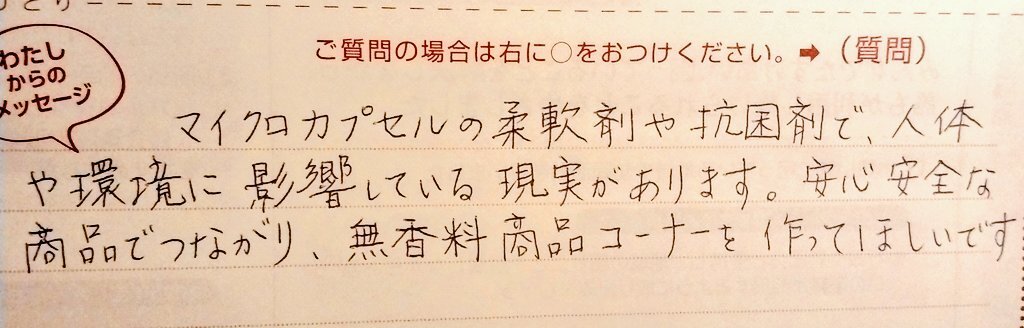 ご質問の場合は右に○をおつけください。➡（質問）
わたし
からの
メッセージ
マイクロカプセルの柔軟剤や抗菌剤で、人体
や環境に影響している現実があります。安心安全な
商品でつながり、無香料商品コーナーを作ってほしいです